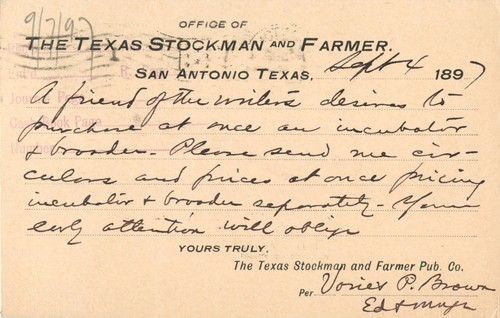 9/7/97
OFFICE OF
THE TEXAS STOCKMAN AND FARMER.
SAN ANTONIO TEXAS, Sept 4 1897
A friend of the writers desires to
purchase at once an incubator
& brooder - Please send me cir-
culars and prices at once pricing
incubator & brooder separately - Your
early attention will oblige
YOURS TRULY,
The Texas Stockman and Farmer Pub. Co.
Per Vories P. Brown
Ed & Mngr